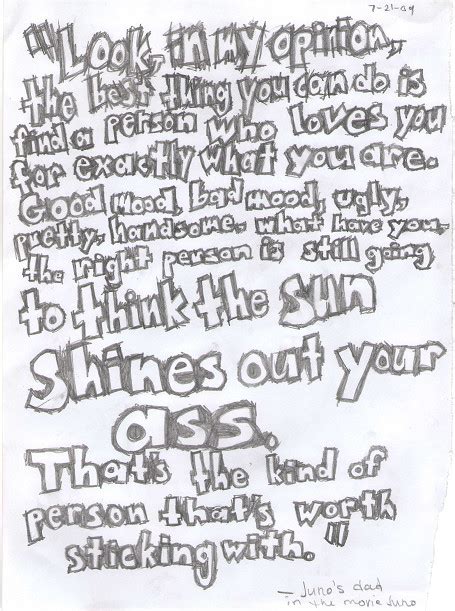 7-21-09
"Look, in my opinion,
the best thing you can do is
find a person who loves you
for exactly what you are.
Good mood, bad mood, ugly,
pretty, handsome, what have you,
the right person is still going
to think the sun
shines out your
ass.
That's the kind of
person that's worth
sticking with."
— Juno's dad
in the movie Juno